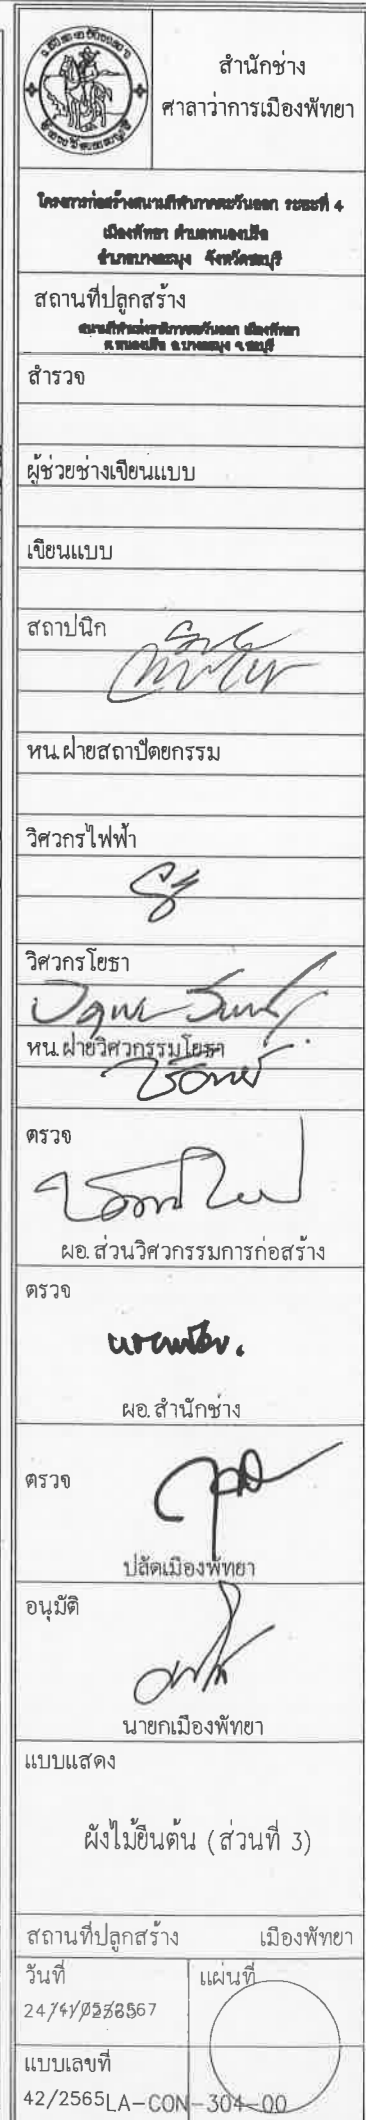 สำนักช่าง
ศาลาว่าการเมืองพัทยา
โครงการก่อสร้างสนามกีฬาภาคตะวันออก ระยะที่ 4
เมืองพัทยา ตำบลหนองปรือ
อำเภอบางละมุง จังหวัดชลบุรี
สถานที่ปลูกสร้าง
สนามกีฬาแห่งชาติภาคตะวันออก เมืองพัทยา
ต.หนองปรือ อ.บางละมุง จ.ชลบุรี
สำรวจ
ผู้ช่วยช่างเขียนแบบ
เขียนแบบ
สถาปนิก
หน.ฝ่ายสถาปัตยกรรม
วิศวกรไฟฟ้า
วิศวกรโยธา
หน.ฝ่ายวิศวกรรมโยธา
ตรวจ
ผอ.ส่วนวิศวกรรมการก่อสร้าง
ตรวจ
ผอ.สำนักช่าง
ตรวจ
ปลัดเมืองพัทยา
อนุมัติ
นายกเมืองพัทยา
แบบแสดง
ผังไม้ยืนต้น (ส่วนที่ 3)
สถานที่ปลูกสร้าง เมืองพัทยา
วันที่ แผ่นที่
แบบเลขที่
42/2565 LA-CON-304-00